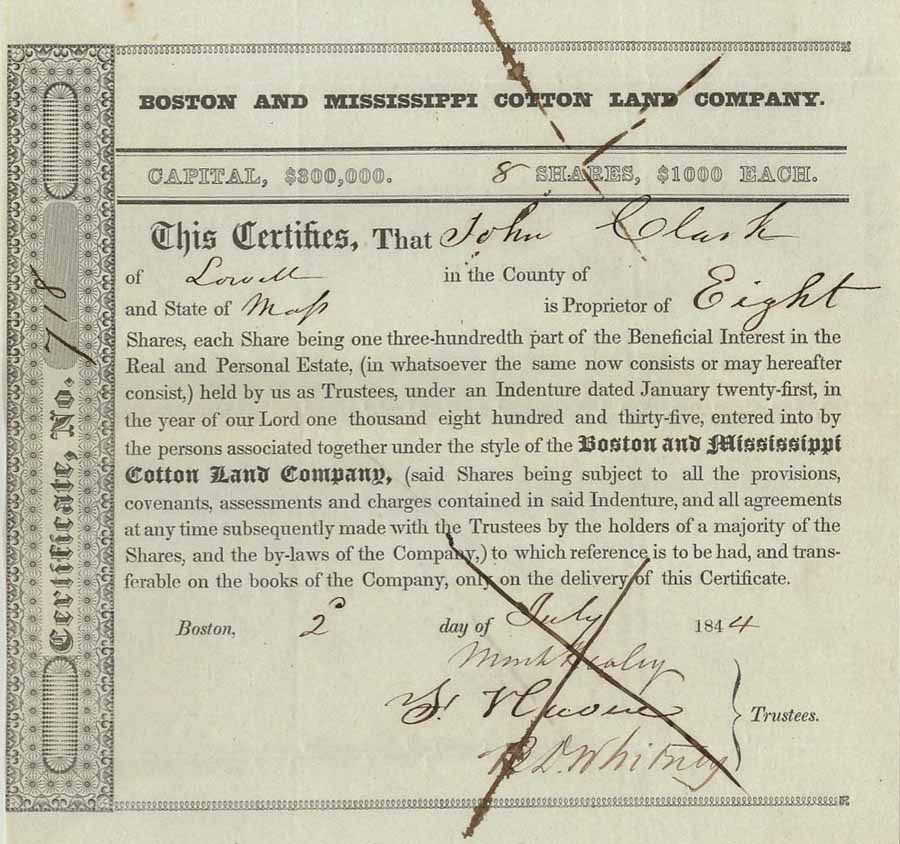 BOSTON AND MISSISSIPPI COTTON LAND COMPANY.
CAPITAL, $300,000. 8 SHARES, $1000 EACH.
This Certifies, That John Clark
of Lowell in the County of
and State of Mass is Proprietor of Eight
Shares, each Share being one three-hundredth part of the Beneficial Interest in the
Real and Personal Estate, (in whatsoever the same now consists or may hereafter
consist,) held by us as Trustees, under an Indenture dated January twenty-first, in
the year of our Lord one thousand eight hundred and thirty-five, entered into by
the persons associated together under the style of the Boston and Mississippi
Cotton Land Company, (said Shares being subject to all the provisions,
covenants, assessments and charges contained in said Indenture, and all agreements
at any time subsequently made with the Trustees by the holders of a majority of the
Shares, and the by-laws of the Company,) to which reference is to be had, and trans-
ferable on the books of the Company, only on the delivery of this Certificate.
Boston, 2d day of July 1844
Mark Healey
R. D. Whitney
Trustees.
Certificate, No. 718